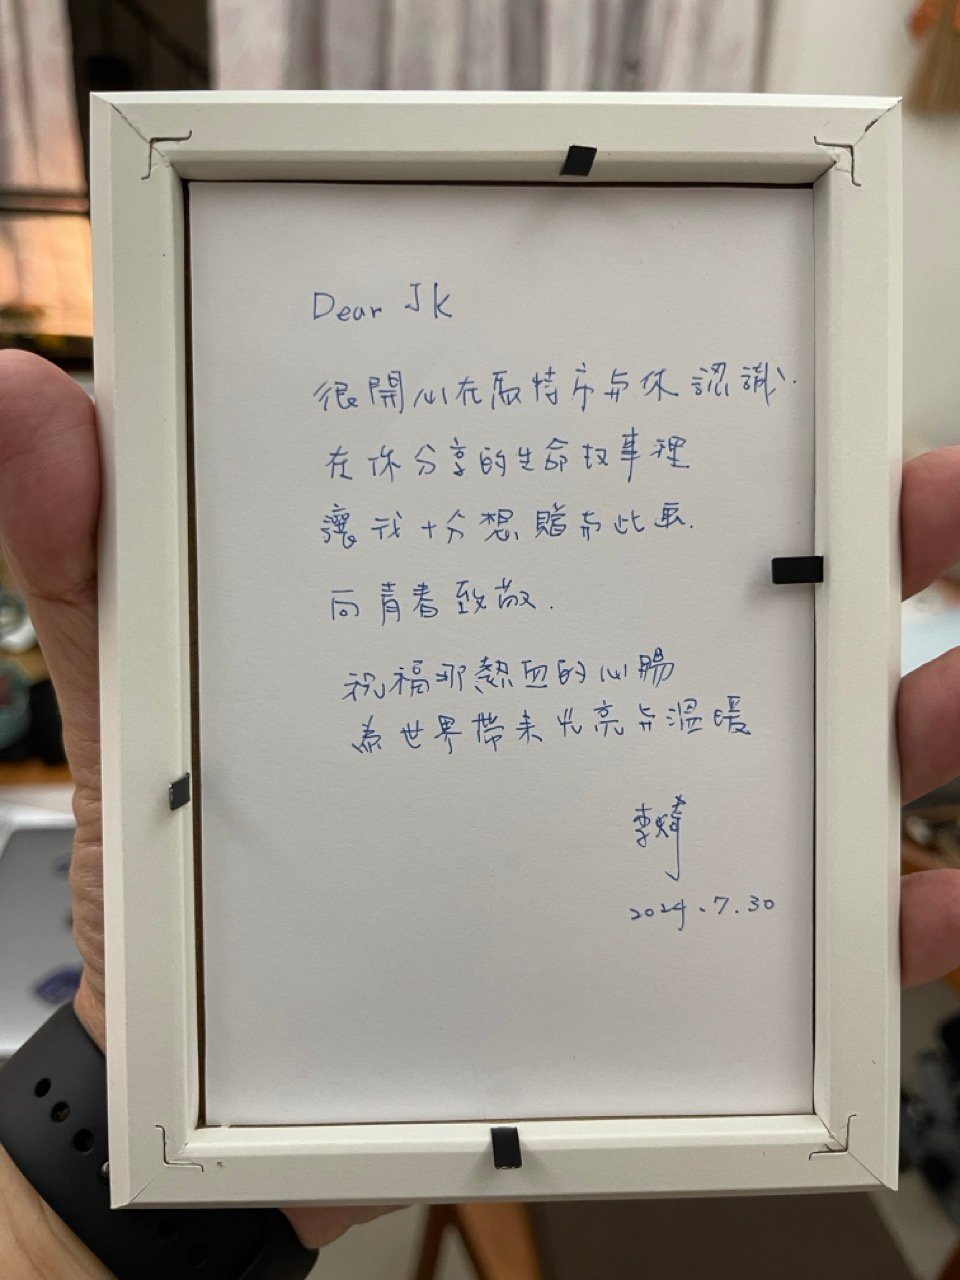 Dear JK
很開心在馭特市与你認識.
在你分享的生命故事裡
讓我十分想贈与此画.
向青春致敬.
祝福那熱血的心腸
為世界帶来光亮与溫暖
李
2024.7.30